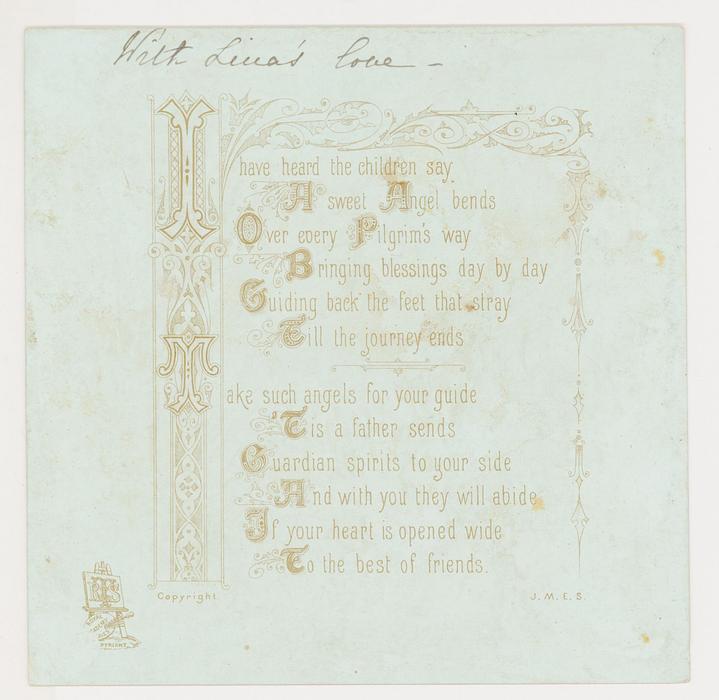 With Lina's love -
I have heard the children say
A sweet Angel bends
Over every Pilgrim's way
Bringing blessings day by day
Guiding back the feet that stray
Till the journey ends
Make such angels for your guide
'Tis a father sends
Guardian spirits to your side
And with you they will abide
If your heart is opened wide
To the best of friends.
Copyright.
J. M. E. S.